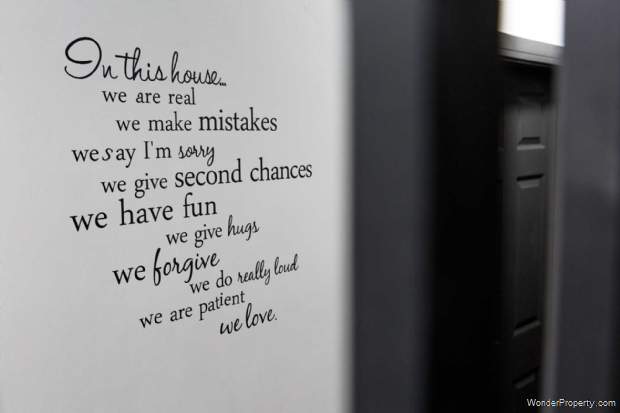 In this house...
we are real
we make mistakes
we say I'm sorry
we give second chances
we have fun
we give hugs
we forgive
we do really loud
we are patient
we love.
WonderProperty.com